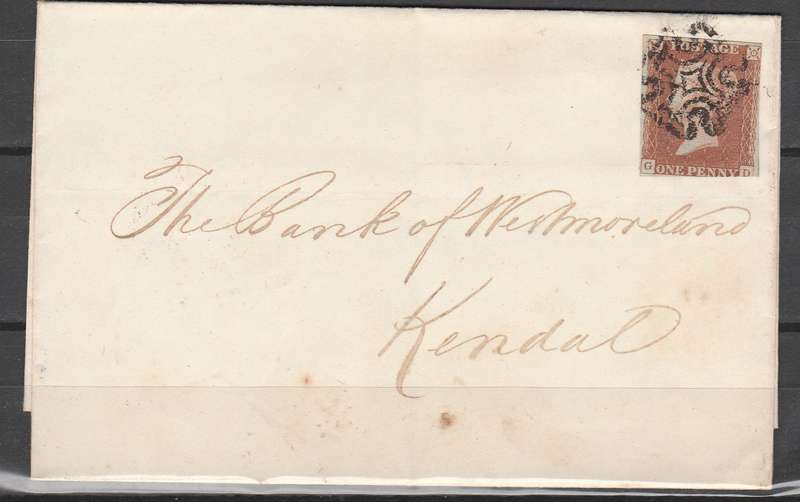 POSTAGE
G ONE PENNY D
The Bank of Westmoreland
Kendal